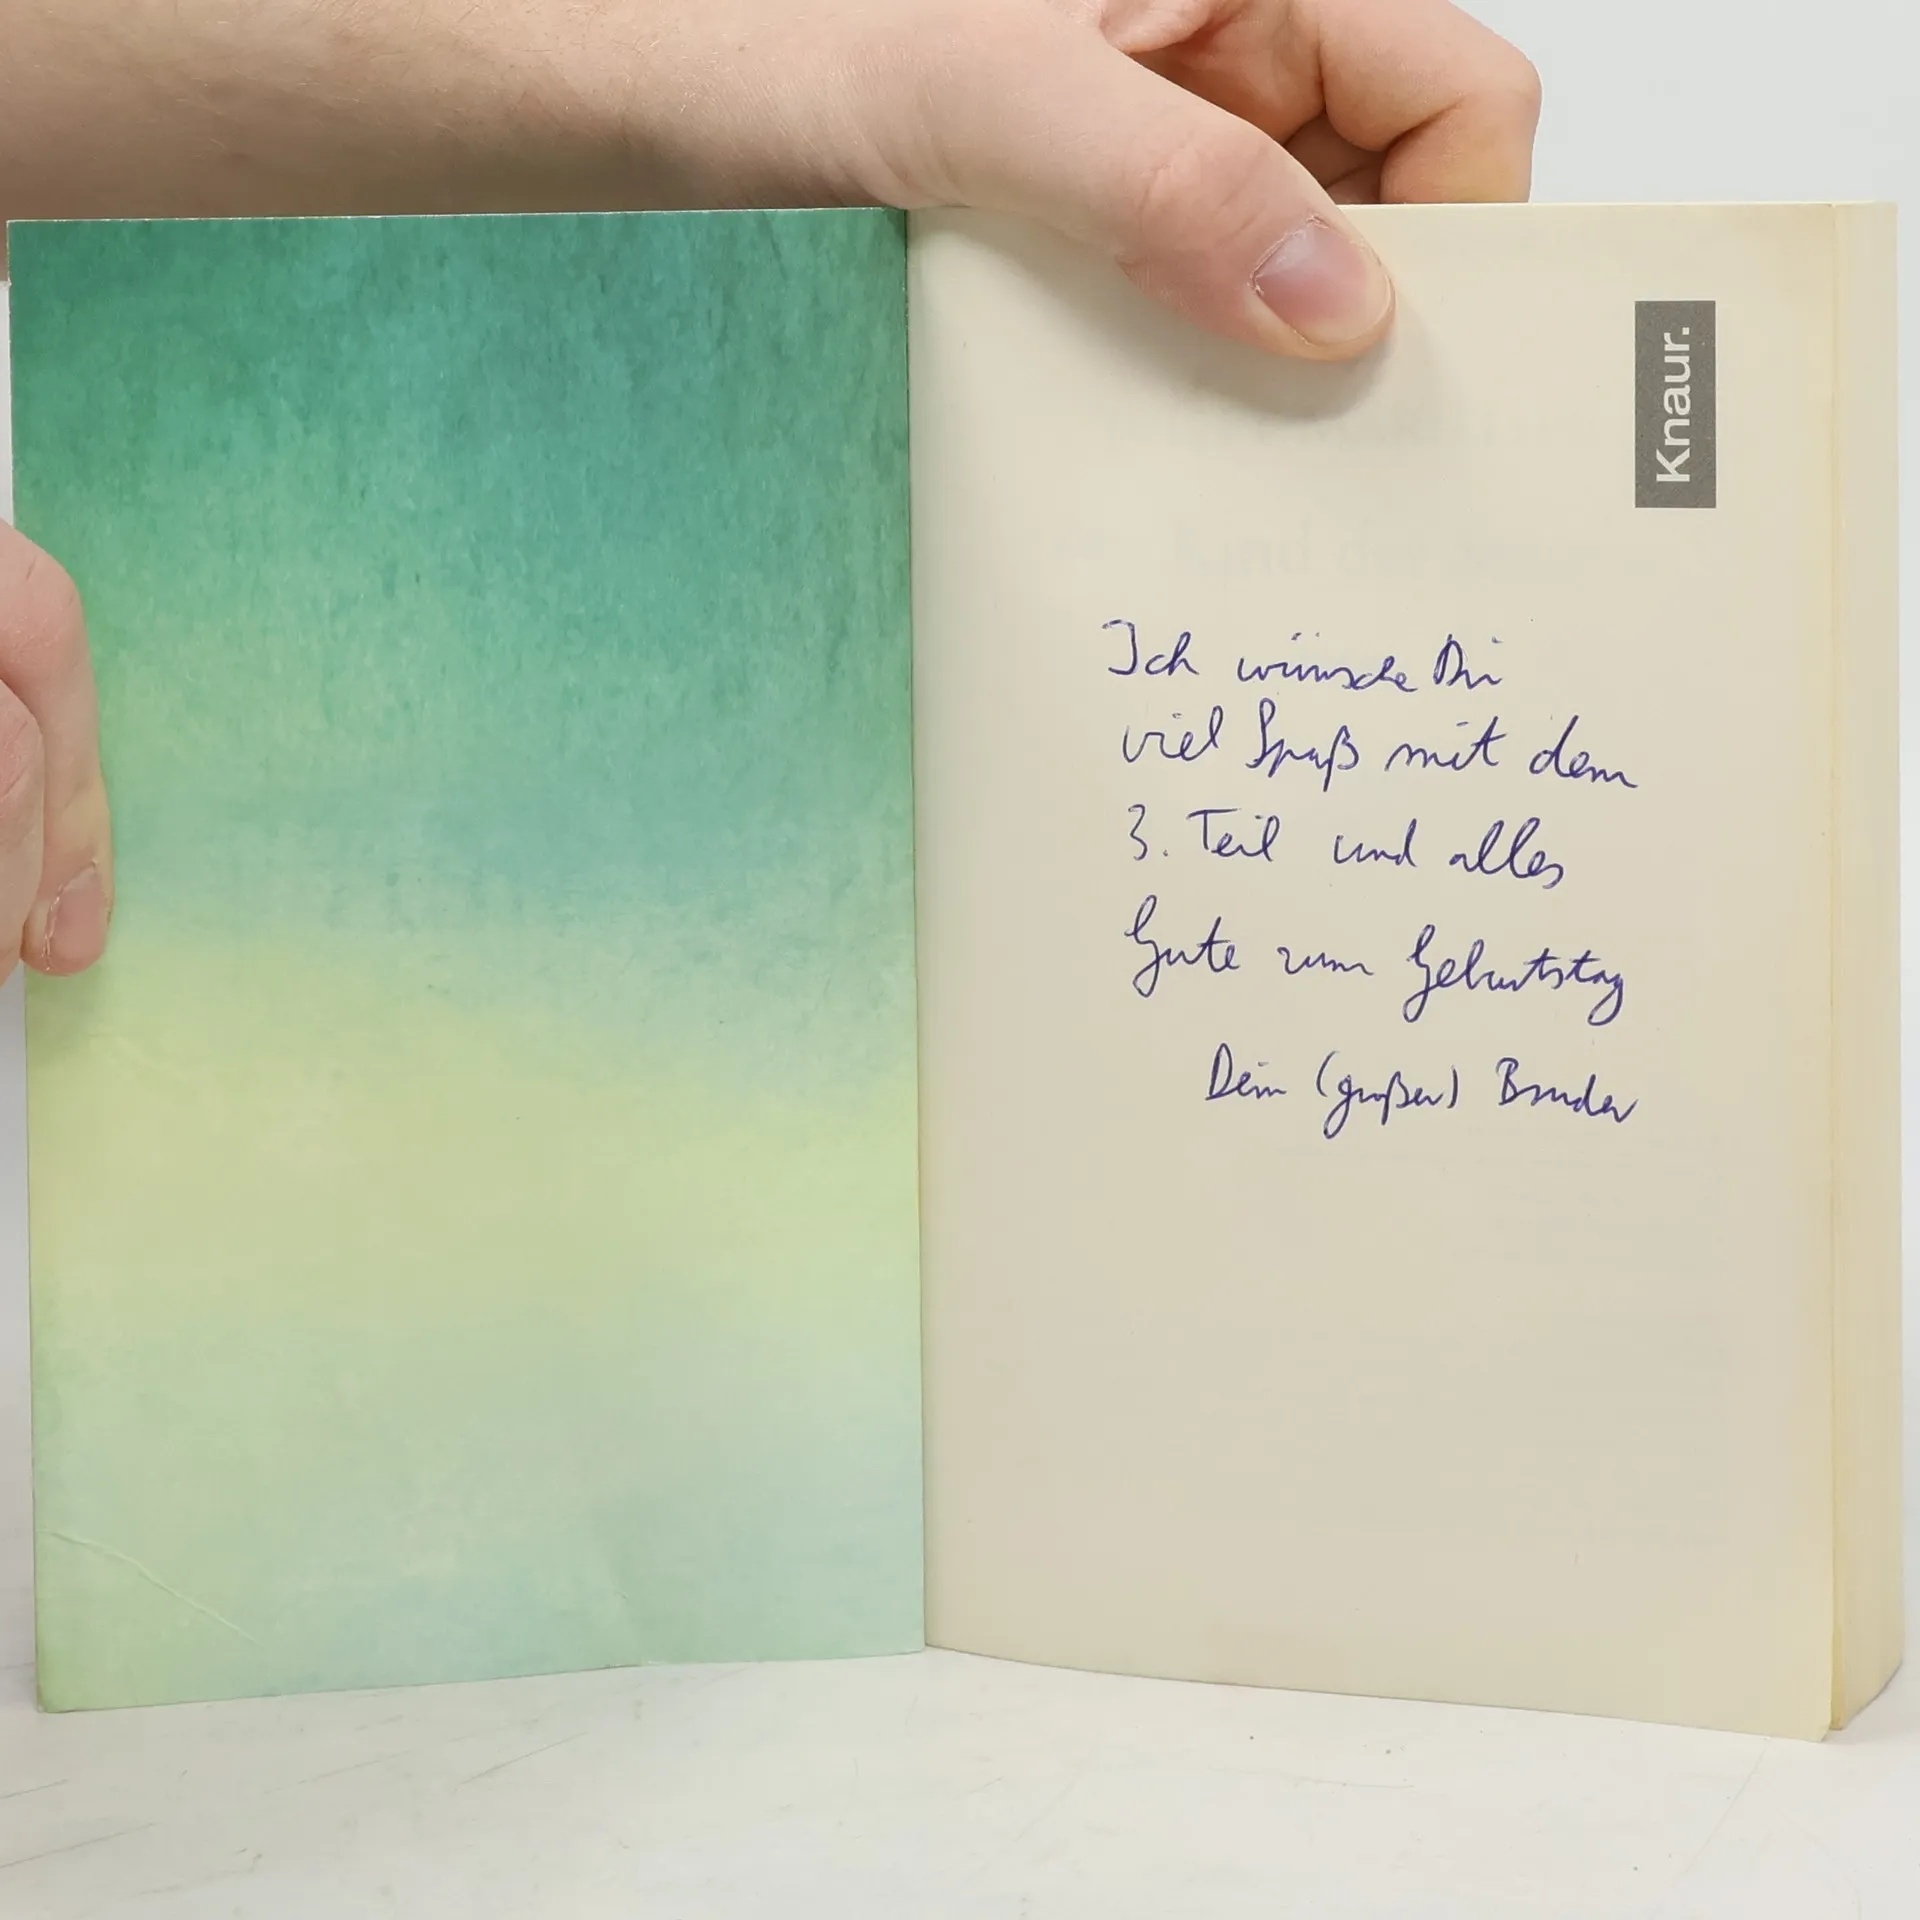 Knaur.
Ich wünsche Dir
viel Spaß mit dem
3. Teil und alles
Gute zum Geburtstag
Dein (großer) Bruder